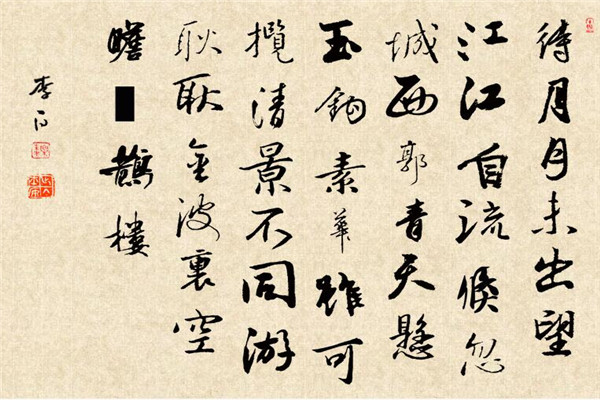 待月月未出望
江江自流倏忽
城西郭青天懸
玉鈎素華雖可
攬清景不同游
耿耿金波裏空
瞻鵲樓
李白